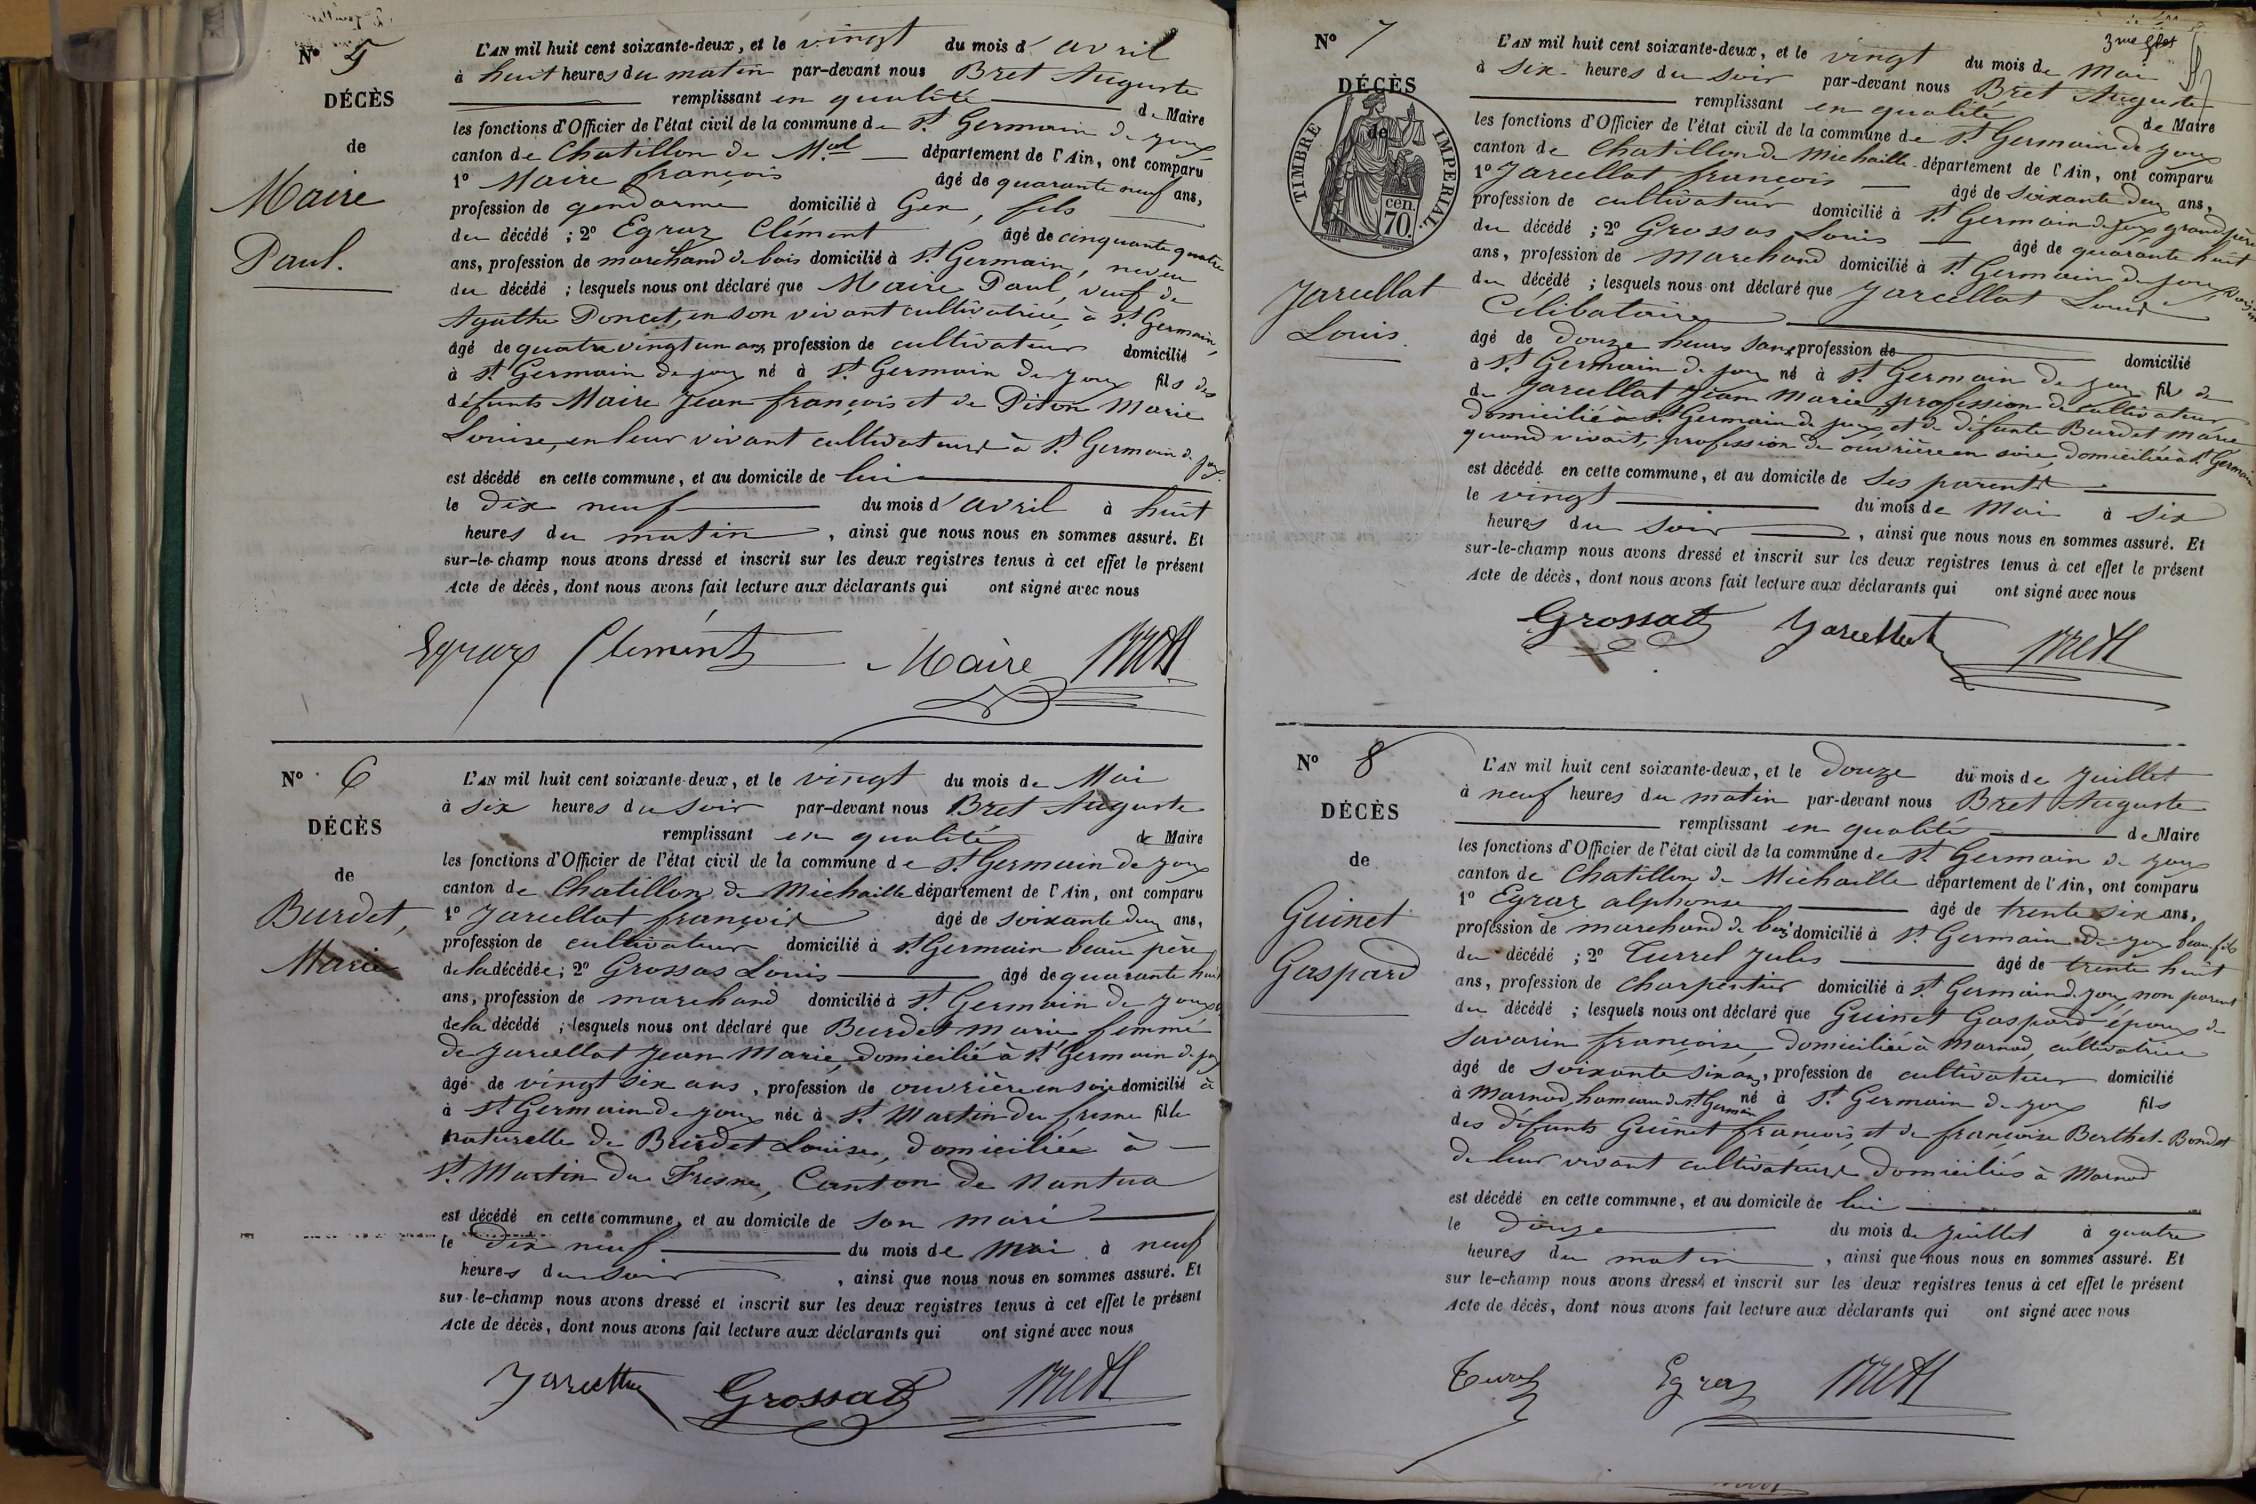 N° 5
DÉCÈS
de
Maire
Paul.
L'AN mil huit cent soixante-deux, et le vingt du mois d'avril
à huit heures du matin par-devant nous Bret Auguste
remplissant en qualité de Maire
les fonctions d'Officier de l'état civil de la commune de St. Germain de joux
canton de Chatillon de Mlle département de l'Ain, ont comparu
1° Maire françois âgé de quarante neuf ans,
profession de gendarme domicilié à Gex, fils
du décédé ; 2° Egraz Clément âgé de cinquante quatre
ans, profession de marchand de bois domicilié à St. Germain, neveu
du décédé ; lesquels nous ont déclaré que Maire Paul, veuf de
Agathe Poncet, en son vivant cultivatrice, à St. Germain,
âgé de quatre vingt un ans profession de cultivateur domicilié
à St. Germain de joux né à St. Germain de joux fils des
défunts Maire Jean françois et de Piton Marie
Louise, en leur vivant cultivateurs à St. Germain de joux.
est décédé en cette commune, et au domicile de lui
le dix neuf du mois d'avril à huit
heures du matin, ainsi que nous nous en sommes assuré. Et
sur-le-champ nous avons dressé et inscrit sur les deux registres tenus à cet effet le présent
Acte de décès, dont nous avons fait lecture aux déclarants qui ont signé avec nous
Egraz Clément Maire Bret
N° 6
DÉCÈS
de
Burdet,
Marie
L'AN mil huit cent soixante-deux, et le vingt du mois de Mai
à six heures du soir par-devant nous Bret Auguste
remplissant en qualité de Maire
les fonctions d'Officier de l'état civil de la commune de St. Germain de joux
canton de Chatillon de Michaille département de l'Ain, ont comparu
1° Jarcellat françois âgé de soixante deux ans,
profession de cultivateur domicilié à St. Germain beau père
de la décédée; 2° Grossas Louis âgé de quarante huit
ans, profession de marchand domicilié à St. Germain de joux
de la décédé ; lesquels nous ont déclaré que Burdet Marie femme
de Jarcellat Jean Marie, domicilié à St. Germain de joux
âgé de vingt six ans, profession de ouvrière en soie domicilié à
à St. Germain de joux née à St. Martin du fresne fille
naturelle de Burdet Louise, domiciliée à
St. Martin du Fresne, Canton de Nantua
est décédé en cette commune, et au domicile de son mari
le dix neuf du mois de Mai à neuf
heures du soir, ainsi que nous nous en sommes assuré. Et
sur-le-champ nous avons dressé et inscrit sur les deux registres tenus à cet effet le présent
Acte de décès, dont nous avons fait lecture aux déclarants qui ont signé avec nous
Jarcellat Grossas Bret
3me flet
N° 7
DÉCÈS
de
TIMBRE IMPÉRIAL
cen.
70.
Jarcellat
Louis.
L'AN mil huit cent soixante-deux, et le vingt du mois de Mai
à six heures du soir par-devant nous Bret Auguste
remplissant en qualité de Maire
les fonctions d'Officier de l'état civil de la commune de St. Germain de joux
canton de Chatillon de Michaille département de l'Ain, ont comparu
1° Jarcellat françois âgé de soixante deux ans,
profession de cultivateur domicilié à St. Germain de joux grand père
du décédé ; 2° Grossas Louis âgé de quarante huit
ans, profession de Marchand domicilié à St. Germain de joux, voisin
du décédé ; lesquels nous ont déclaré que Jarcellat Louis
Célibataire
âgé de douze heures sans profession de domicilié
à St. Germain de joux né à St. Germain de joux fils de
de Jarcellat Jean Marie, profession de cultivateur,
domicilié à St. Germain de joux et de défunte Burdet Marie
quand vivait, profession de ouvrière en soie, domiciliée à St. Germain
est décédé en cette commune, et au domicile de ses parents
le vingt du mois de Mai à six
heures du soir, ainsi que nous nous en sommes assuré. Et
sur-le-champ nous avons dressé et inscrit sur les deux registres tenus à cet effet le présent
Acte de décès, dont nous avons fait lecture aux déclarants qui ont signé avec nous
Grossas Jarcellat Bret
N° 8
DÉCÈS
de
Guinet
Gaspard
L'AN mil huit cent soixante-deux, et le douze du mois de Juillet
à neuf heures du matin par-devant nous Bret Auguste
remplissant en qualité de Maire
les fonctions d'Officier de l'état civil de la commune de St. Germain de joux
canton de Chatillon de Michaille département de l'Ain, ont comparu
1° Egraz alphonse âgé de trente six ans,
profession de marchand de bois domicilié à St. Germain de joux beau fils
du décédé ; 2° Turrel Jules âgé de trente huit
ans, profession de Charpentier domicilié à St. Germain de joux, non parent
du décédé ; lesquels nous ont déclaré que Guinet Gaspard époux de
Savarin françoise, domiciliée à Marnod, cultivatrice
âgé de soixante six ans, profession de cultivateur domicilié
à Marnod, hameau de St. Germain né à St. Germain de joux fils
des défunts Guinet françois, et de françoise Berthet-Bondet
de leur vivant cultivateurs domiciliés à Marnod
est décédé en cette commune, et au domicile de lui
le douze du mois de Juillet à quatre
heures du matin, ainsi que nous nous en sommes assuré. Et
sur le-champ nous avons dressé et inscrit sur les deux registres tenus à cet effet le présent
Acte de décès, dont nous avons fait lecture aux déclarants qui ont signé avec nous
Turrel Egraz Bret